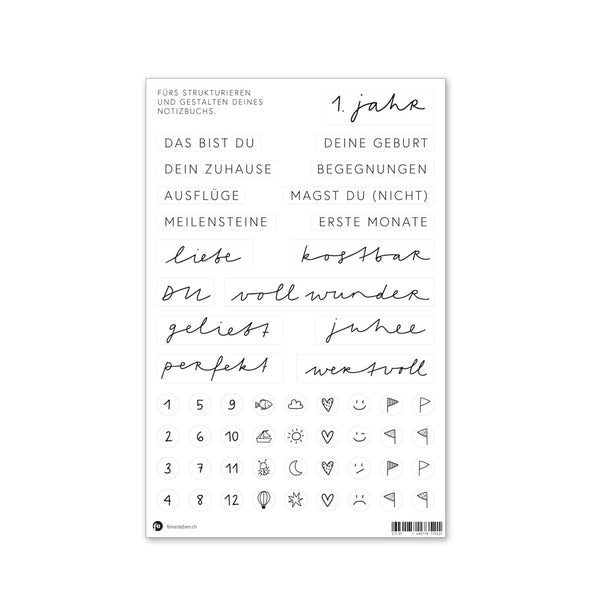 FÜRS STRUKTURIEREN
UND GESTALTEN DEINES
NOTIZBUCHS.
1. jahr
DAS BIST DU DEINE GEBURT
DEIN ZUHAUSE BEGEGNUNGEN
AUSFLÜGE MAGST DU (NICHT)
MEILENSTEINE ERSTE MONATE
liebe kostbar
DU voll wunder
geliebt juhee
perfekt wertvoll
1 5 9
2 6 10
3 7 11
4 8 12
fe feinesleben.ch